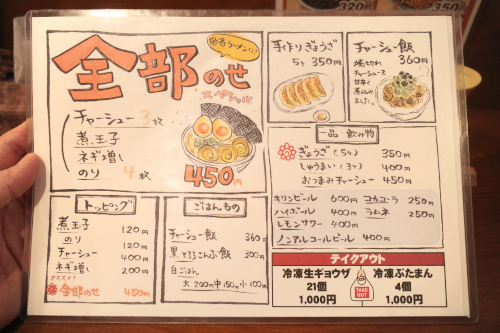 お好きなラーメンに!
全部のせ
スペシャル
チャーシュー 3枚
煮玉子
ネギ増し
のり 4枚
450円
手作りぎょうざ
5ヶ 350円
チャーシュー飯
360円
チャーシューを
甘辛く
煮込み
ました。
一品・飲み物
ぎょうざ(5ヶ) 350円
しゅうまい(3ヶ) 400円
おつまみチャーシュー 450円
キリンビール 600円
ハイボール 400円
レモンサワー 400円
ノンアルコールビール 400円
コカコーラ 250円
ラムネ 250円
トッピング
煮玉子 120円
のり 120円
チャーシュー 400円
ネギ増し 200円
オススメ!
全部のせ 450円
ごはんもの
チャーシュー飯 360円
黒とろろこんぶ飯 300円
白ごはん
大200円 中150円 小100円
テイクアウト
冷凍生ギョウザ
21個
1,000円
TAKE OUT
冷凍ぶたまん
4個
1,000円
320円
350円